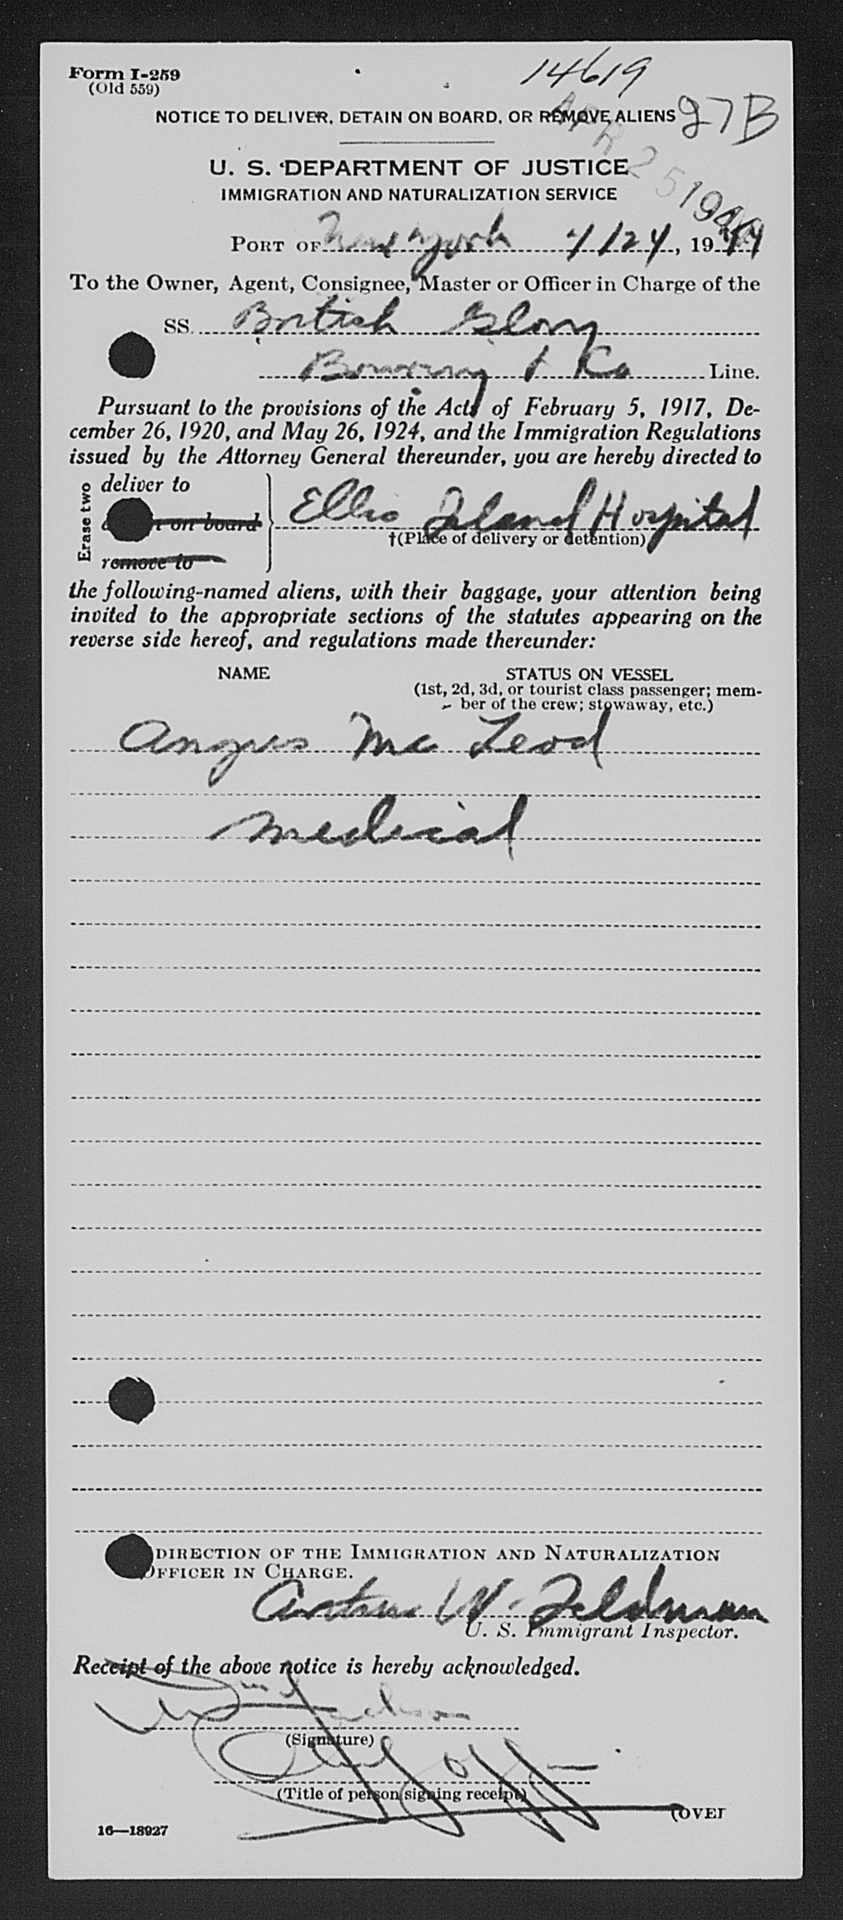 Form I-259
(Old 559)
14619
NOTICE TO DELIVER, DETAIN ON BOARD, OR REMOVE ALIENS 27B
APR 25 1944
U. S. DEPARTMENT OF JUSTICE
IMMIGRATION AND NATURALIZATION SERVICE
PORT OF New York 4/24, 1944
To the Owner, Agent, Consignee, Master or Officer in Charge of the
SS. British Glory
Bowring & Co Line.
Pursuant to the provisions of the Acts of February 5, 1917, De-
cember 26, 1920, and May 26, 1924, and the Immigration Regulations
issued by the Attorney General thereunder, you are hereby directed to
Erase two
deliver to
on board
remove to
Ellis Island Hospital
†(Place of delivery or detention)
the following-named aliens, with their baggage, your attention being
invited to the appropriate sections of the statutes appearing on the
reverse side hereof, and regulations made thereunder:
NAME STATUS ON VESSEL
(1st, 2d, 3d, or tourist class passenger; mem-
ber of the crew; stowaway, etc.)
Angus Mc Leod
Medical
DIRECTION OF THE IMMIGRATION AND NATURALIZATION
OFFICER IN CHARGE.
Arthur W. Feldman
U. S. Immigrant Inspector.
Receipt of the above notice is hereby acknowledged.
(Signature)
Chf Off
(Title of person signing receipt)
(OVER
16—18927